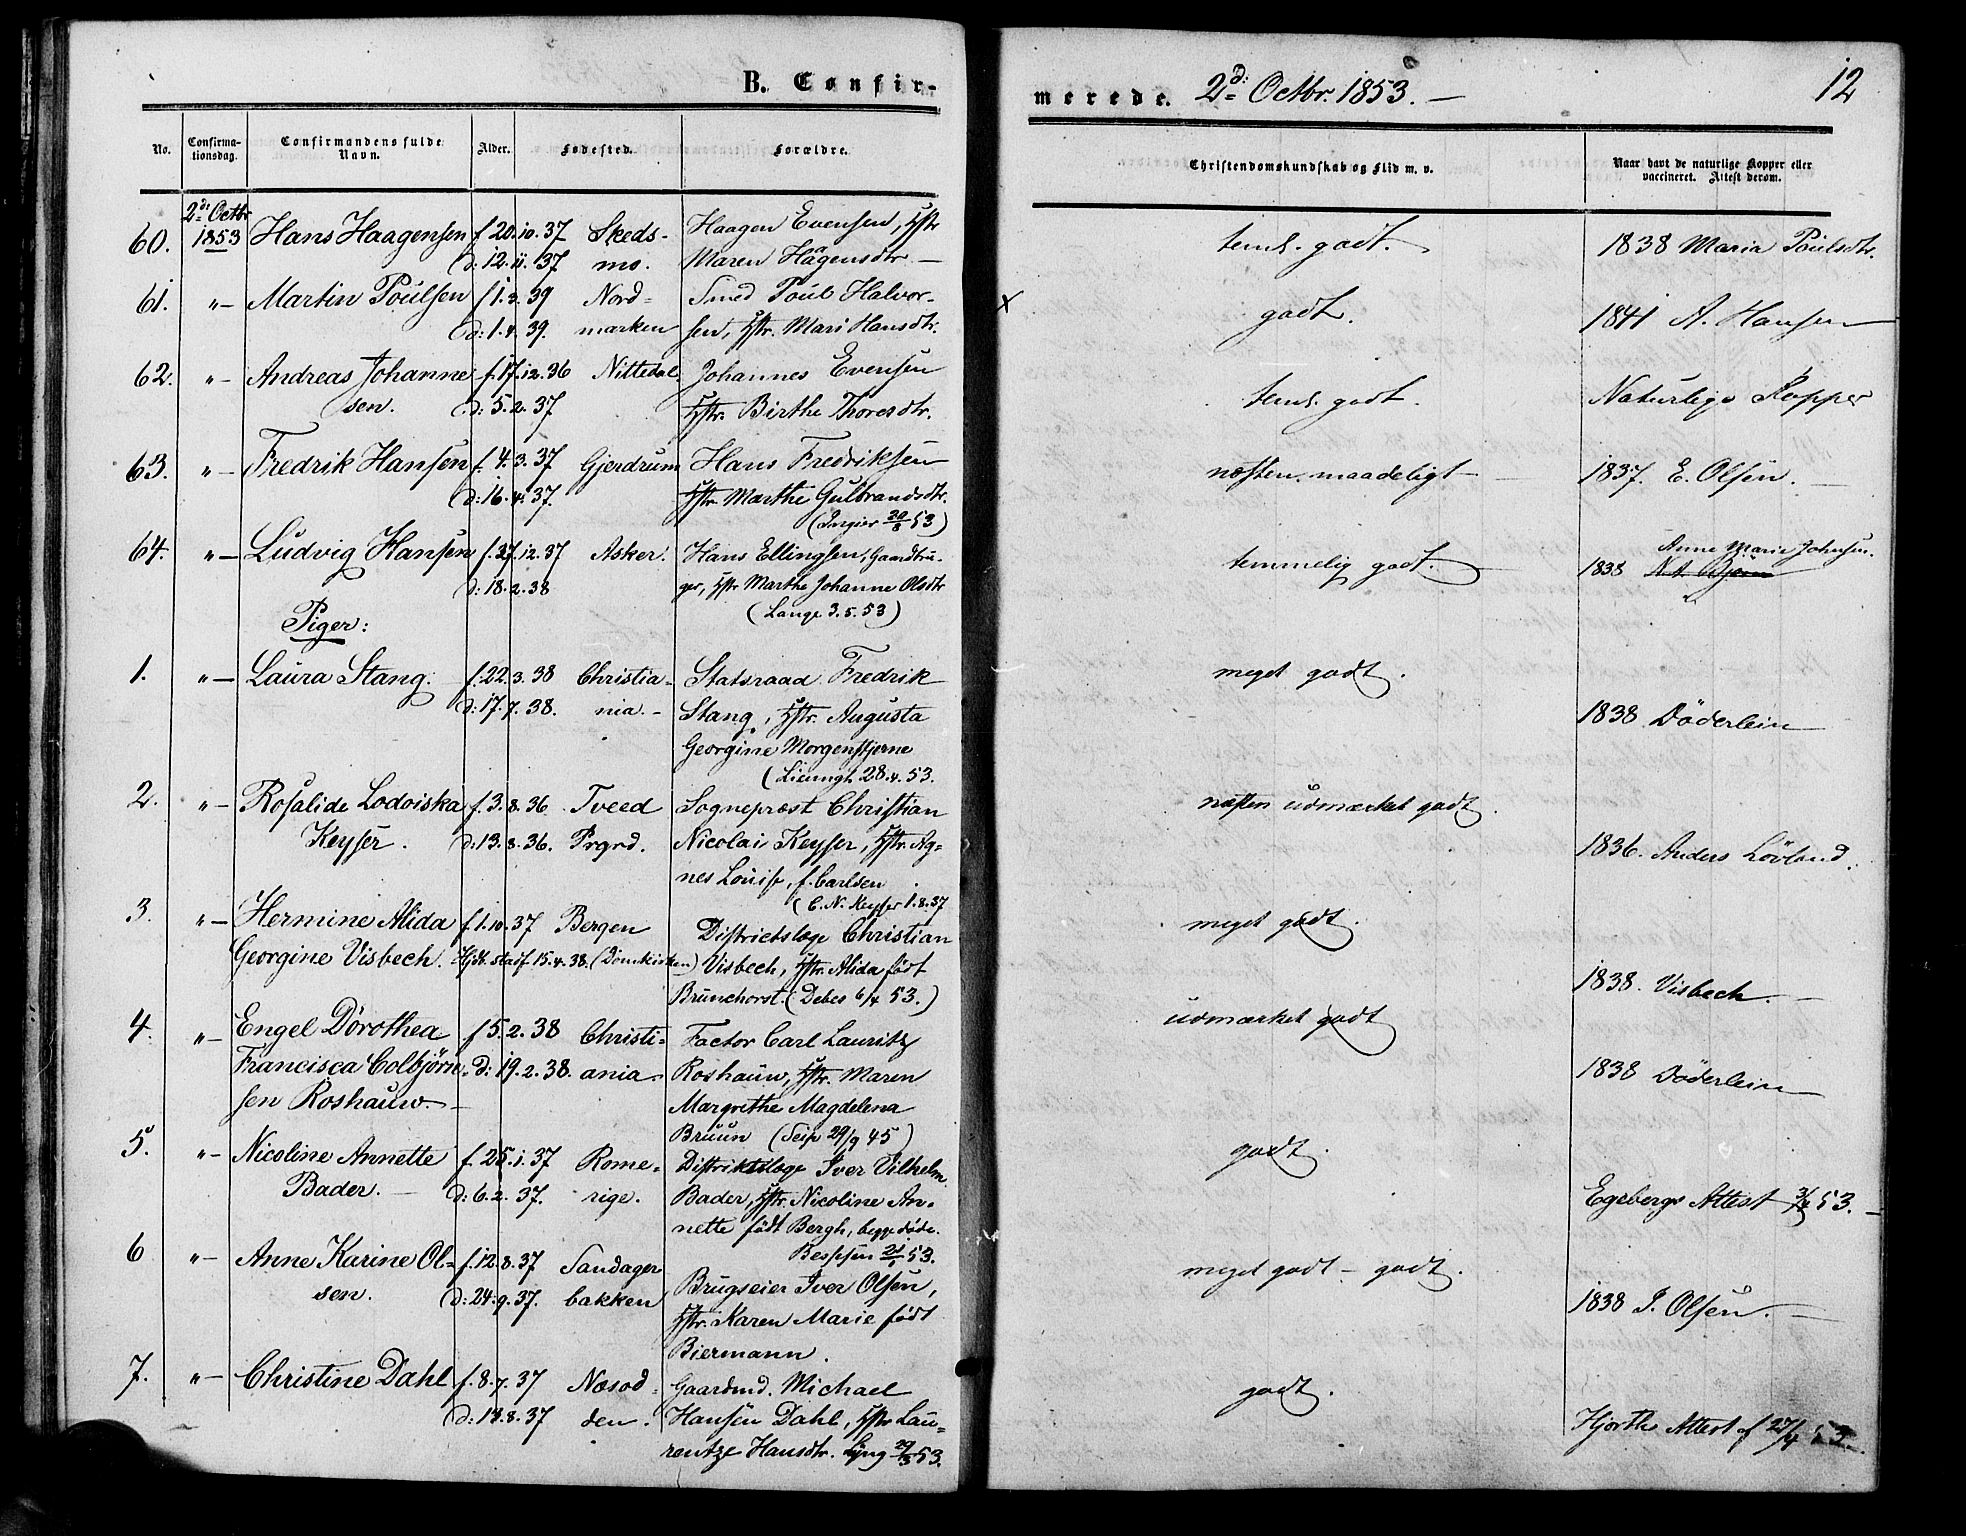 B. Confir-
merede. 2d: Octbr. 1853. —
12
No.
Confirma-
tionsdag.
Confirmandens fulde
Navn.
Alder.
Fødested.
Forældre.
Christendomskundskab og Flid m. v.
Naar havt de naturlige Kopper eller
vaccineret. Attest derom.
2d: Octbr
60. 1853 Hans Haagensen f. 20.10.37 Skeds- Haagen Evensen, Hstr
d: 12.11.37 mo. Maren Hågensdtr —
teml. godt. 1838 Maria Poulsdtr.
61. "— Martin Poulsen f 1.3.39 Nord- Smed Poul Halvor-
d: 1.4.39. marken sen, Hstr. Mari Hansdtr.
x godt. 1841 A. Hansen
62. "— Andreas Johanne f. 17.12.36 Nittedal. Johannes Evensen
sen. d: 5.2.37 Hstr. Birthe Thoresdtr.
teml. godt. Naturlige Kopper
63. "— Fredrik Hansen f. 4.3.37 Gjerdrum Hans Fredriksen
d: 16.4.37. Hstr. Marthe Gulbrandsdtr.
(Ingier 20/8 53)
næsten maadeligt — 1837. E. Olsen. —
64. "— Ludvig Hansen f. 27.12.37 Asker. Hans Ellingsen, Gaardbru-
d: 18.2.38 ger, Hstr Marthe Johanne Olsdtr
(Lange 3.5.53)
temmelig godt. Anne Marie Johnsen.
1838 Bjørn
Piger:
1. "— Laura Stang. f. 22.3.38 Christia- Statsraad Fredrik
d: 17.7.38. nia. - Stang, Hstr. Augusta
Georgine Morgenstjerne
(Lieungh 28.4.53.
meget godt.
1838 Döderlein
2. "— Rosalide Lodoiska f. 3.8.36 Tveed Sognepræst Christian
Keyser. d: 13.8.36. Prgrd. Nicolai Keyser, Hstr. Ag-
nes Louise, f. Carlsen
(C. N. Keyser 1.8.37
næsten udmærket godt.
1836. Anders Lövland.
3. "— Hermine Alida f. 1.10.37 Bergen Districtslæge Christian
Georgine Visbech. 15.4.38. (Domkirken) Visbech, Hstr. Alida født
Brunchorst. (Debes 6/4 53.)
meget godt.
1838. Visbech. —
4. "— Engel Dorothea f 5.2.38 Christi- Factor Carl Lauritz
Francisca Colbjørn- d: 19.2.38. ania Roshauw, Hstr. Maren
sen Roshauw. — Margrethe Magdelena
Bruun (Seip 29/9 45)
udmærket godt
1838 Döderlein
5. "— Nicoline Annette f. 25.1.37 Rome- Distriktslæge Iver Vilhelm
Bader. — d: 6.2.37. rige. Bader, Hstr. Nicoline An-
nette født Bergh, begge døde.
53.
godt.
Egebergs Attest 53. —
6 "— Anne Karine Ol- f. 12.8.37 Sandager Brugseier Iver Olsen,
sen. d: 24.9.37. bakken Hstr. Karen Marie født
Biermann.
meget godt — godt.
1838 I. Olsen. —
7. "— Christine Dahl f. 8.7.37 Næsod- Gaardmd. Michael
d: 13.8.37 den. Hansen Dahl, Hstr Lau-
rentze Hansdtr. Lyng 53.
godt.
Hjorths Attest af 27/4 53.